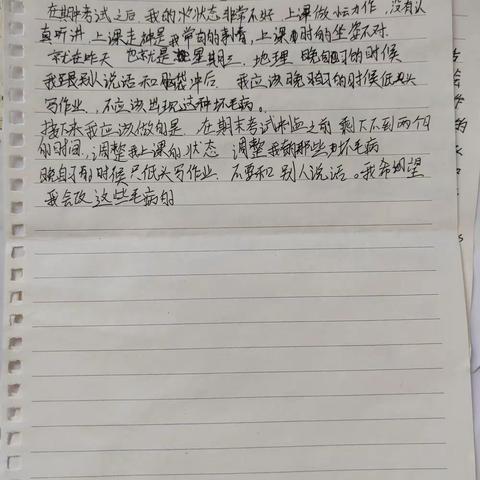 在期中考试之后,我的状态非常不好,上课做小动作,没有认
真听讲,上课走神是我常有的事情,上课时的坐姿不对.
就在昨天 也就是星期三,地理 晚自习的时候
我跟别人说话和脑袋冲后,我应该晚自习的时候低头
写作业,不应该出现这种坏毛病。
接下来我应该做的是,在期末考试来临之前 剩下不到两个月
的时间,调整我上课的状态 调整我的那些坏毛病
晚自习的时候只低头写作业,不要和别人说话。我希望
我会改这些毛病的